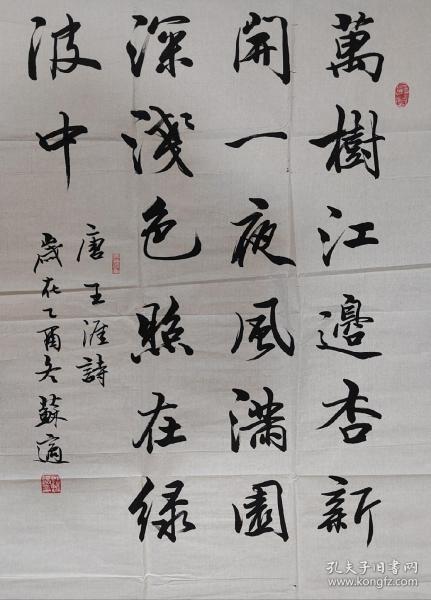 萬樹江邊杏新
開一夜風滿園
深淺色照在緑
波中
唐王涯詩
歲在乙酉冬蘇適
孔夫子旧书网
www.kongfz.com